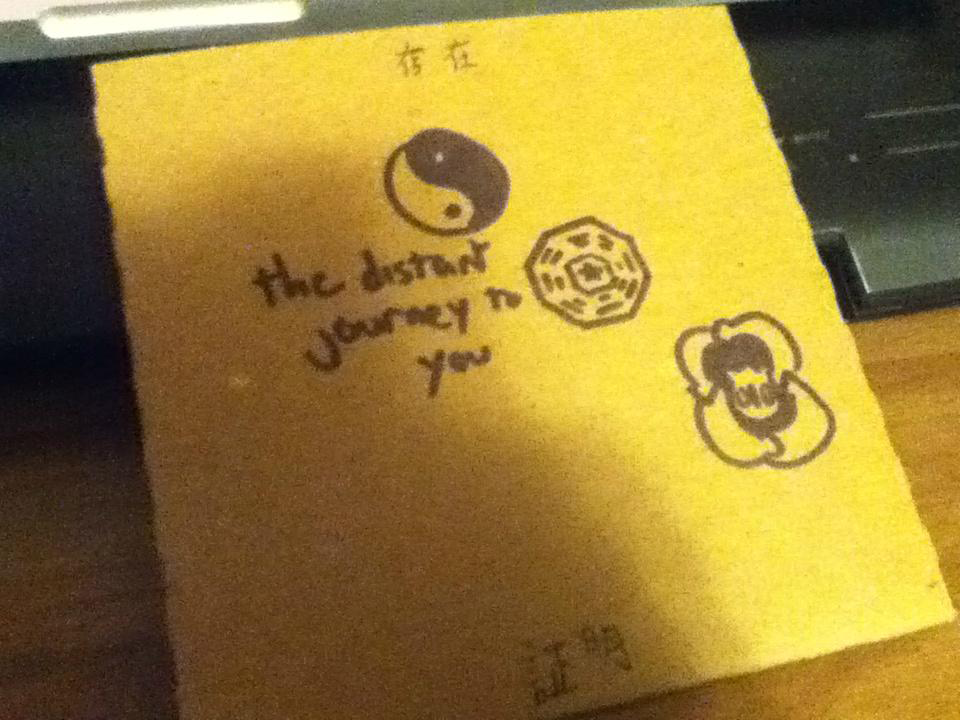 存在
the distant
journey to
you
证明